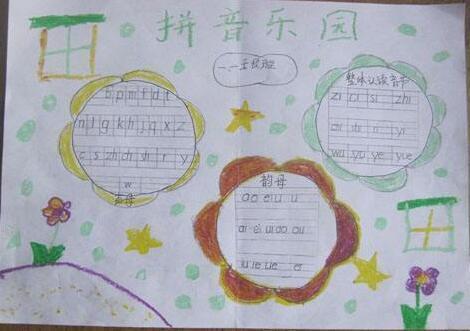 拼音乐园
b p m f d t
n l g k h j q x z
c s zh ch sh r y
w
声母
整体认读音节
zi ci si zhi
chi shi ri yi
wu yu ye yue
韵母
a o e i u ü
ai ei ui ao ou
iu ie üe er